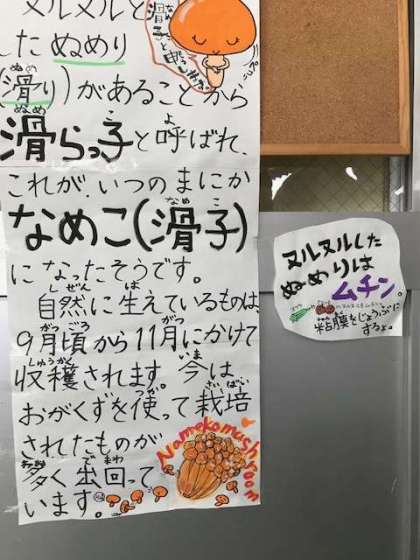 ヌルヌルと
したぬめり
(滑り)があることから
滑らっ子と呼ばれ、
これが、いつのまにか
なめこ(滑子)
になったそうです。
自然に生えているものは、
9月頃から11月にかけて
収穫されます。今は
おがくずを使って栽培
されたものが
多く出回って
います。
Namekomushroom
ヌルヌルした
ぬめりは
ムチン。
粘膜をじょうぶに
するよ。